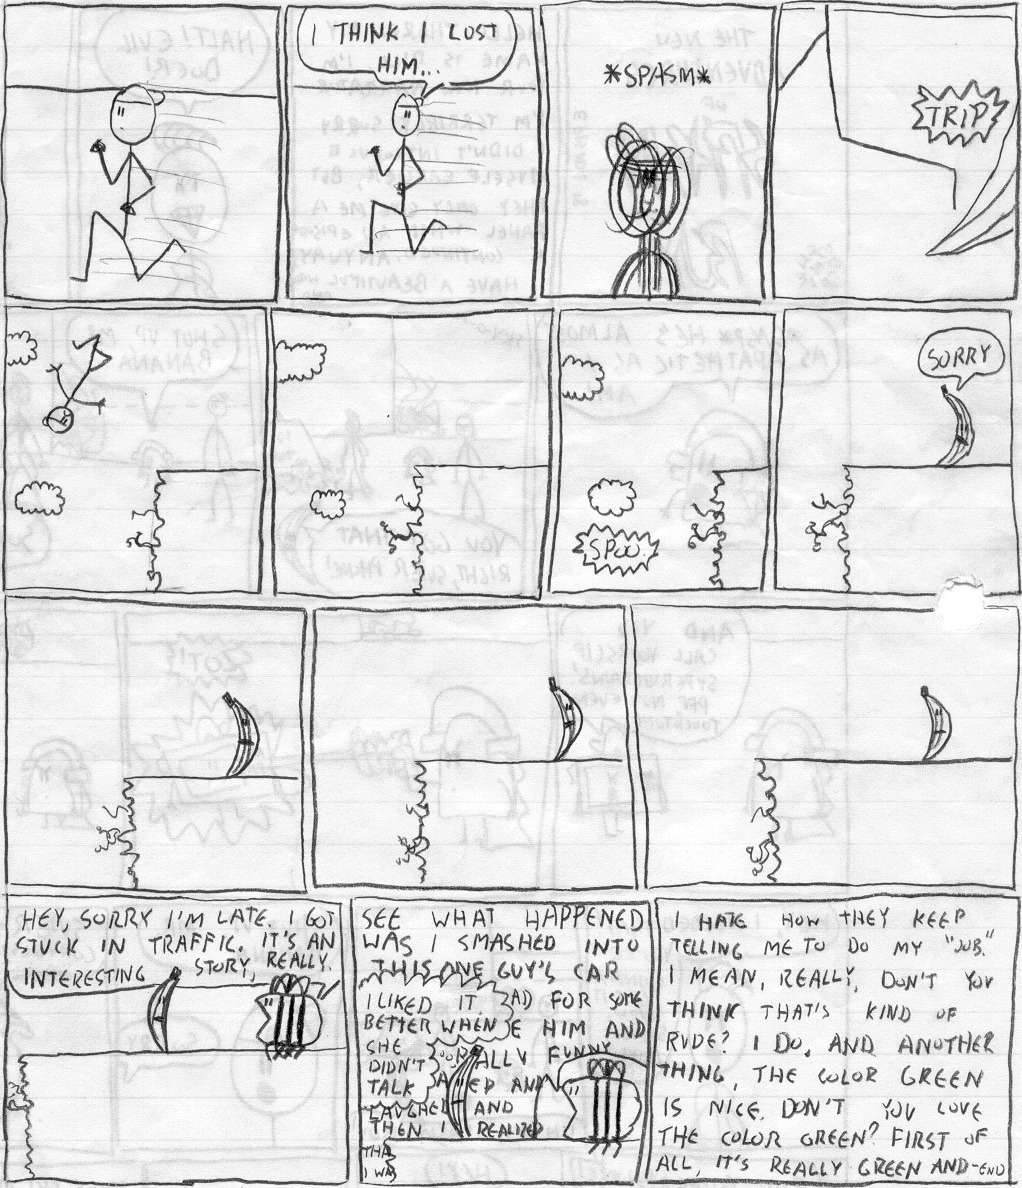 I THINK I LOST
HIM...
*SPASM*
TRIP
SPOO.
SORRY
HEY, SORRY I'M LATE. I GOT
STUCK IN TRAFFIC. IT'S AN
INTERESTING STORY, REALLY.
SEE WHAT HAPPENED
WAS I SMASHED INTO
THIS ONE GUY'S CAR
AD FOR SOME
E HIM AND
ALLY FUNNY
ED AND
LAUGHED AND
THEN I REALIZED
THA
I WAS
I LIKED IT
BETTER WHEN
SHE
DIDN'T
TALK
I HATE HOW THEY KEEP
TELLING ME TO DO MY "JOB."
I MEAN, REALLY, DON'T YOU
THINK THAT'S KIND OF
RUDE? I DO. AND ANOTHER
THING, THE COLOR GREEN
IS NICE. DON'T YOU LOVE
THE COLOR GREEN? FIRST OF
ALL, IT'S REALLY GREEN AND -END